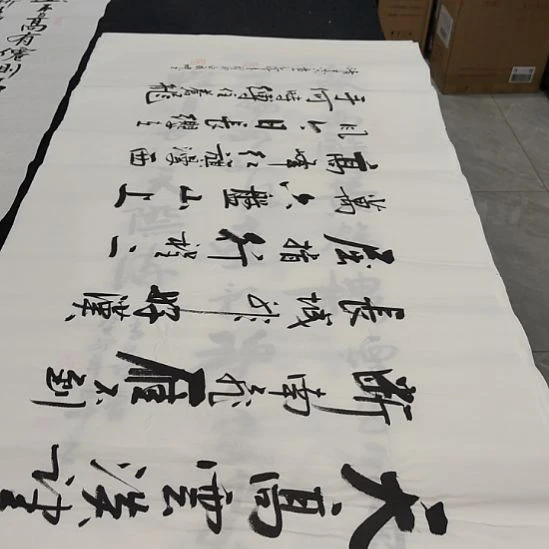 天高雲淡望
斷南飛雁不到
長城非好漢
屈指行程二
萬六盤山上
高峰紅旗漫西
风今日長纓在
手何時縛住蒼龍
高有